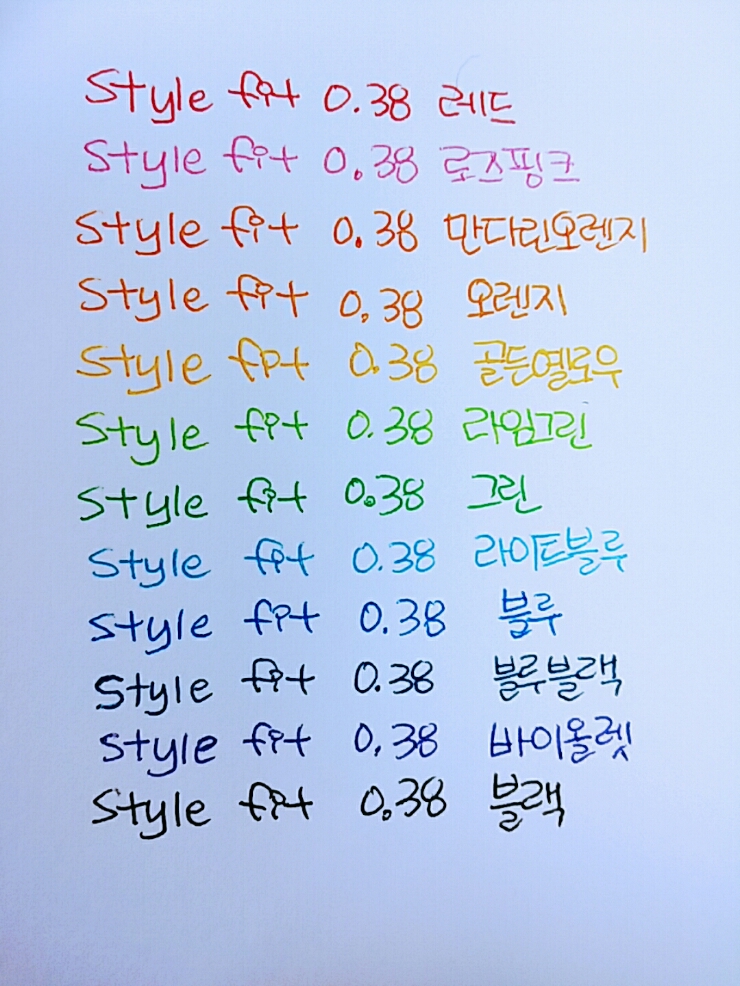 Style fit 0.38 레드
Style fit 0.38 로즈핑크
Style fit 0.38 만다린오렌지
Style fit 0.38 오렌지
Style fit 0.38 골든옐로우
Style fit 0.38 라임그린
Style fit 0.38 그린
Style fit 0.38 라이트블루
Style fit 0.38 블루
Style fit 0.38 블루블랙
Style fit 0.38 바이올렛
Style fit 0.38 블랙